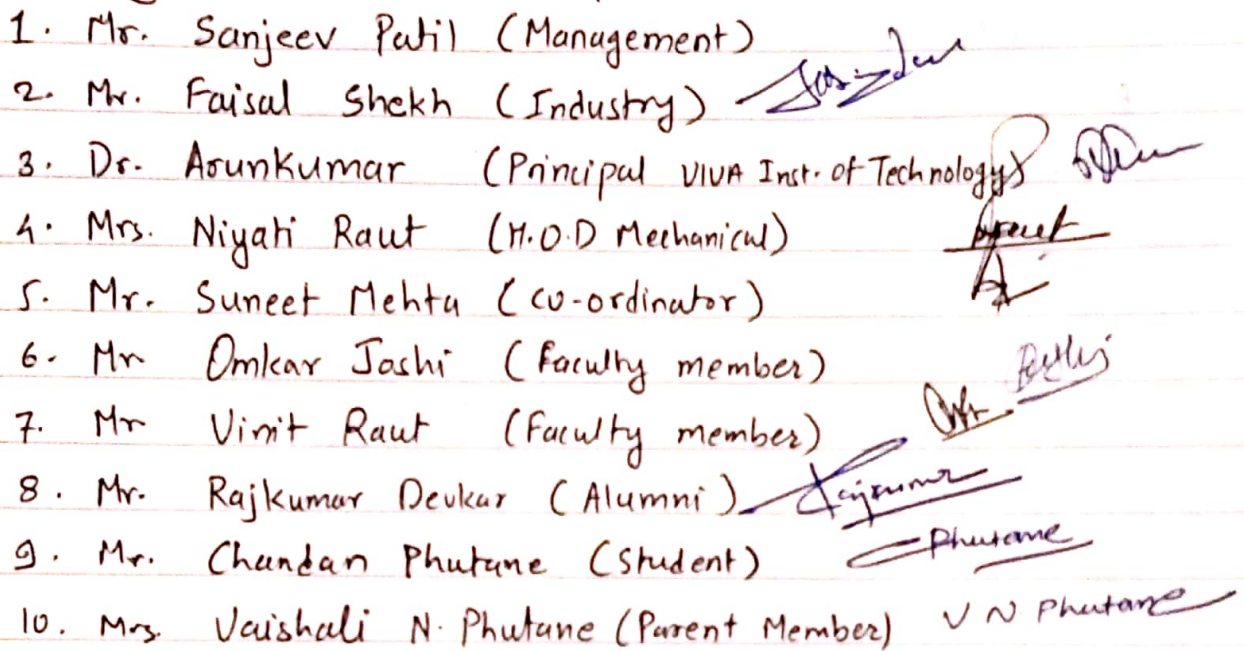 1. Mr. Sanjeev Patil (Management)
2. Mr. Faisal Shekh (Industry)
3. Dr. Arunkumar (Principal VIVA Inst. of Technology)
4. Mrs. Niyati Raut (H.O.D Mechanical)
5. Mr. Suneet Mehta (co-ordinator)
6. Mr Omkar Joshi (Faculty member)
7. Mr Vinit Raut (Faculty member)
8. Mr. Rajkumar Devkar (Alumni) Rajkumar
9. Mr. Chandan Phutane (Student) Phutane
10. Mrs. Vaishali N. Phutane (Parent Member) V N Phutane